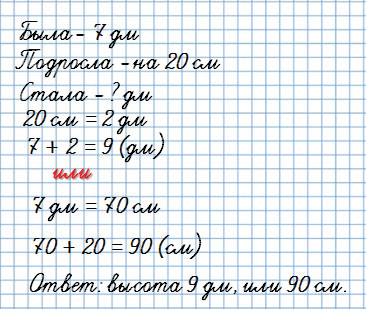 Была - 7 дм
Подросла - на 20 см
Стала - ? дм
20 см = 2 дм
7 + 2 = 9 (дм)
или
7 дм = 70 см
70 + 20 = 90 (см)
Ответ: высота 9 дм, или 90 см.